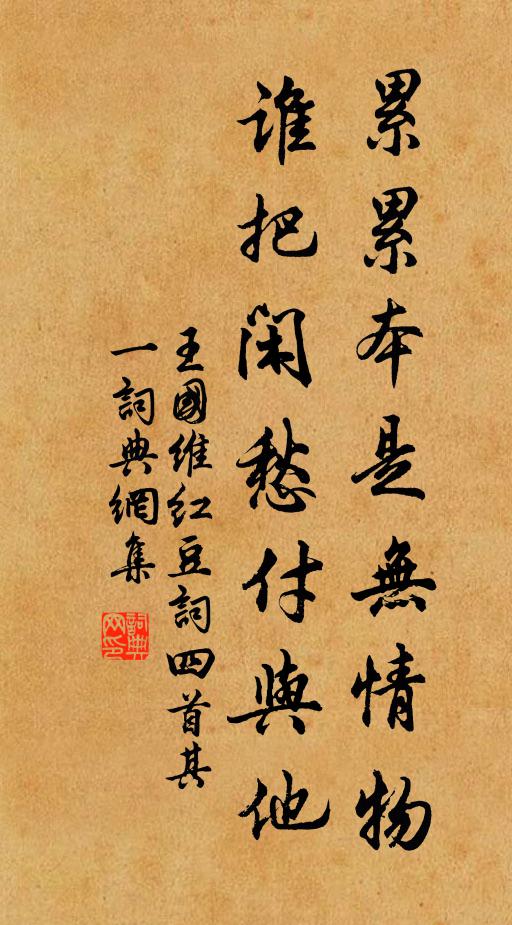 累累本是無情物
誰把閑愁付與他
王國維紅豆詞四首其
一詞典網集
詞典
网印